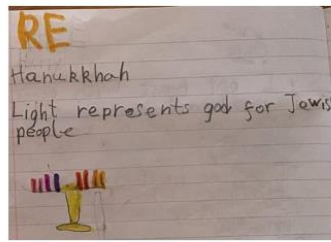 RE
Hanukkhah
Light represents god for Jewis
people